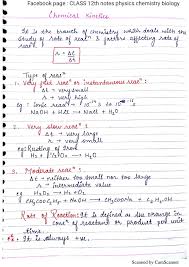 Facebook page : CLASS 12th notes physics chemistry biology
Chemical Kinetics
It is the branch of chemistry which deals with the
study of rate of reacⁿ & factors affecting rate of
reacⁿ.
Type of reacⁿ
1. Very fast reacⁿ or instantaneous reacⁿ :
Δt → very small
r → very high
eg : Ionic reacⁿ
NaOH + HCl → NaCl + H₂O
2. Very slow reacⁿ :
Δt → very large
r → very small
eg: Rusting of Iron
H₂ + ½O₂ → H₂O
3. Moderate reacⁿ :
Δt → neither too small nor too large
r → intermediate value
eg. H₂ + I₂ → 2HI
CH₃COOC₂H₅ + NaOH → CH₃COONa + C₂H₅OH
Rate of Reaction: It is defined as the change in
concⁿ of reactant or product per unit
time.
It is always +ve.
Scanned by CamScanner